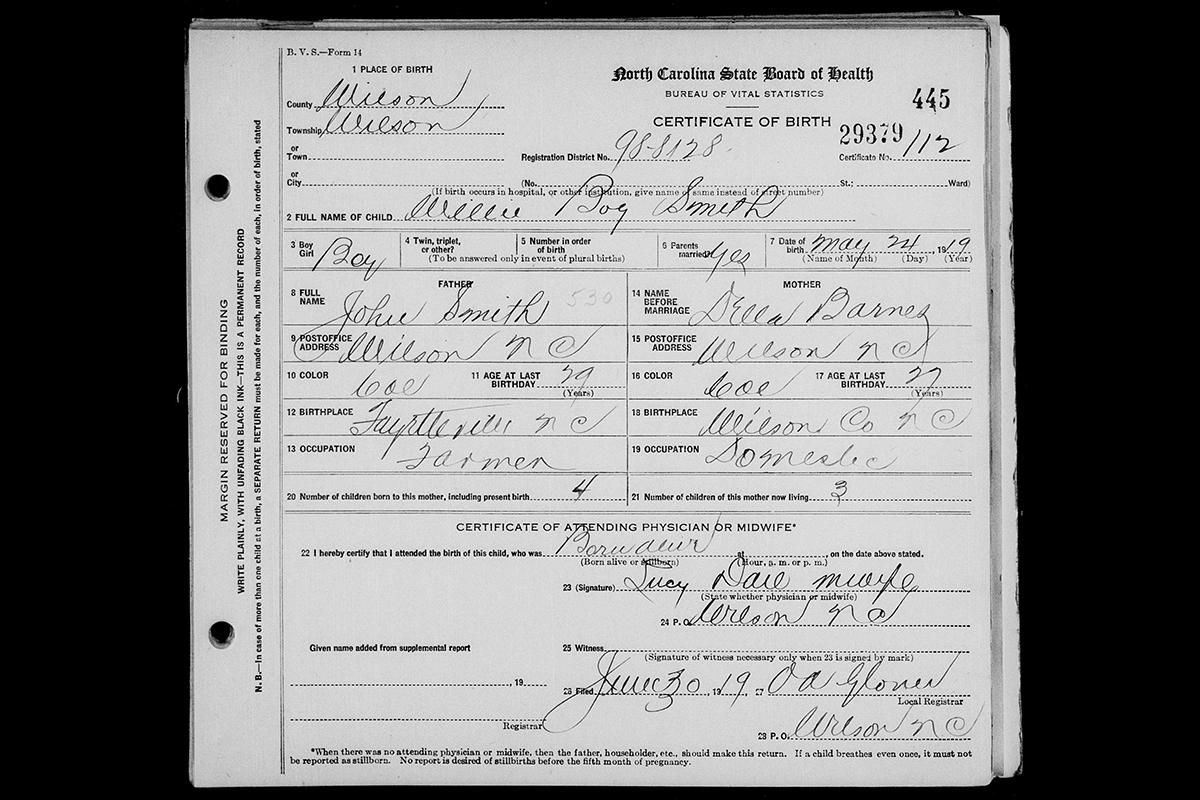 B. V. S.—Form 14
1 PLACE OF BIRTH
North Carolina State Board of Health
BUREAU OF VITAL STATISTICS
445
County Wilson
CERTIFICATE OF BIRTH
Township Wilson
29379
or
Town
Registration District No. 98-8128
Certificate No. 112
or
City (No. St.; Ward)
(If birth occurs in hospital, or other institution, give name of same instead of street number)
2 FULL NAME OF CHILD Willie Boy Smith
3 Boy Girl Boy
4 Twin, triplet, or other?
5 Number in order of birth
(To be answered only in event of plural births)
6 Parents married? Yes
7 Date of birth May 24, 1919
(Name of Month) (Day) (Year)
FATHER
8 FULL NAME John Smith 530
MOTHER
14 NAME BEFORE MARRIAGE Della Barnes
9 POSTOFFICE ADDRESS Wilson N C
15 POSTOFFICE ADDRESS Wilson N C
10 COLOR Col
11 AGE AT LAST BIRTHDAY 29
(Years)
16 COLOR Col
17 AGE AT LAST BIRTHDAY 27
(Years)
12 BIRTHPLACE Fayetteville N C
18 BIRTHPLACE Wilson Co N C
13 OCCUPATION Farmer
19 OCCUPATION Domestic
20 Number of children born to this mother, including present birth 4
21 Number of children of this mother now living 3
CERTIFICATE OF ATTENDING PHYSICIAN OR MIDWIFE*
22 I hereby certify that I attended the birth of this child, who was Born alive at , on the date above stated.
(Born alive or stillborn) (Hour, a. m. or p. m.)
23 (Signature) Lucy midwife
(State whether physician or midwife)
24 P. O. Wilson N C
Given name added from supplemental report
25 Witness
(Signature of witness necessary only when 23 is signed by mark)
, 19
26 Filed June 30, 1919 27 Glover
Local Registrar
Registrar
28 P. O. Wilson N C
*When there was no attending physician or midwife, then the father, householder, etc., should make this return. If a child breathes even once, it must not
be reported as stillborn. No report is desired of stillbirths before the fifth month of pregnancy.
MARGIN RESERVED FOR BINDING
WRITE PLAINLY, WITH UNFADING BLACK INK—THIS IS A PERMANENT RECORD
N. B.—In case of more than one child at a birth, a SEPARATE RETURN must be made for each, and the number of each, in order of birth, stated